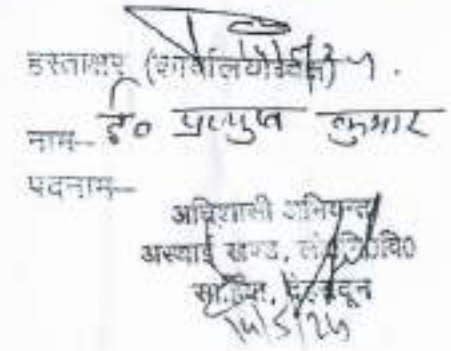 हस्ताक्षर (कार्यालयाध्यक्ष)
नाम— ई० प्रत्युष कुमार
पदनाम—
अधिशासी अभियन्ता
अस्थाई खण्ड, लो०नि०वि०
देहरादून
14/5/24